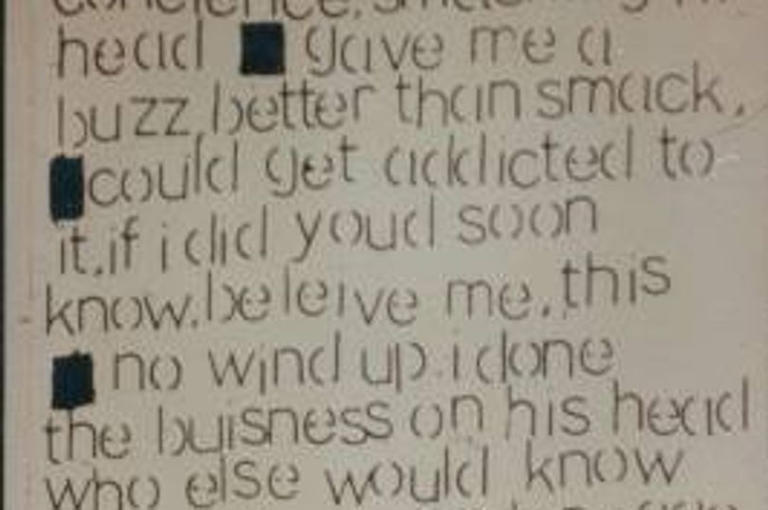 head gave me a
buzz, better than smack.
could get addicted to
it.if i did youd soon
know.beleive me.this
no wind up.i done
the buisness on his head
who else would know